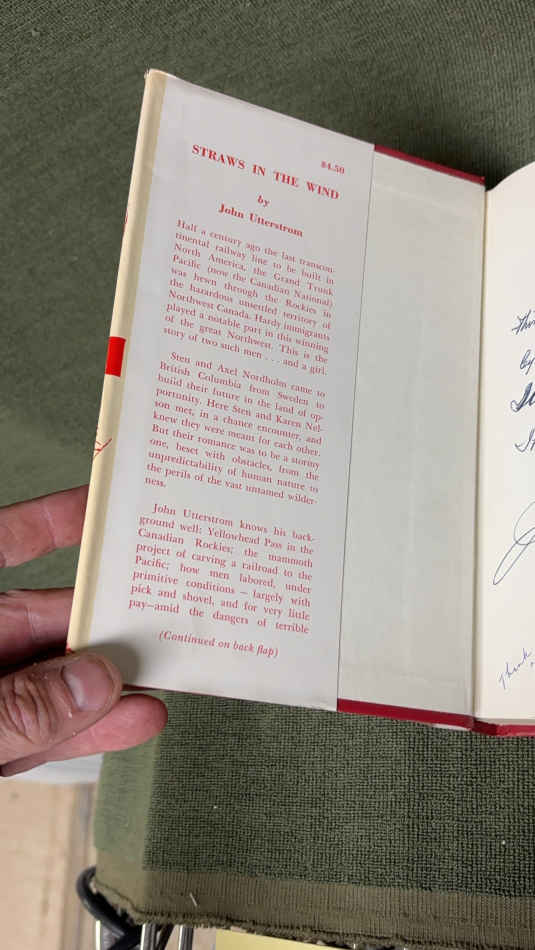 $4.50
STRAWS IN THE WIND
by
John Utterstrom
Half a century ago the last transcon-
tinental railway line to be built in
North America, the Grand Trunk
Pacific (now the Canadian National)
was hewn through the Rockies in
the hazardous unsettled territory of
Northwest Canada. Hardy immigrants
played a notable part in this winning
of the great Northwest. This is the
story of two such men . . . and a girl.
Sten and Axel Nordholm came to
British Columbia from Sweden to
build their future in the land of op-
portunity. Here Sten and Karen Nel-
son met, in a chance encounter, and
knew they were meant for each other.
But their romance was to be a stormy
one, beset with obstacles, from the
unpredictability of human nature to
the perils of the vast untamed wilder-
ness.
John Utterstrom knows his back-
ground well: Yellowhead Pass in the
Canadian Rockies; the mammoth
project of carving a railroad to the
Pacific; how men labored, under
primitive conditions — largely with
pick and shovel, and for very little
pay—amid the dangers of terrible
(Continued on back flap)
by
Thank